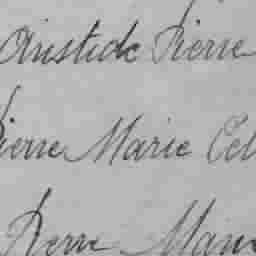 Aristide Pierre
Pierre Marie Cel
Pierre Marie